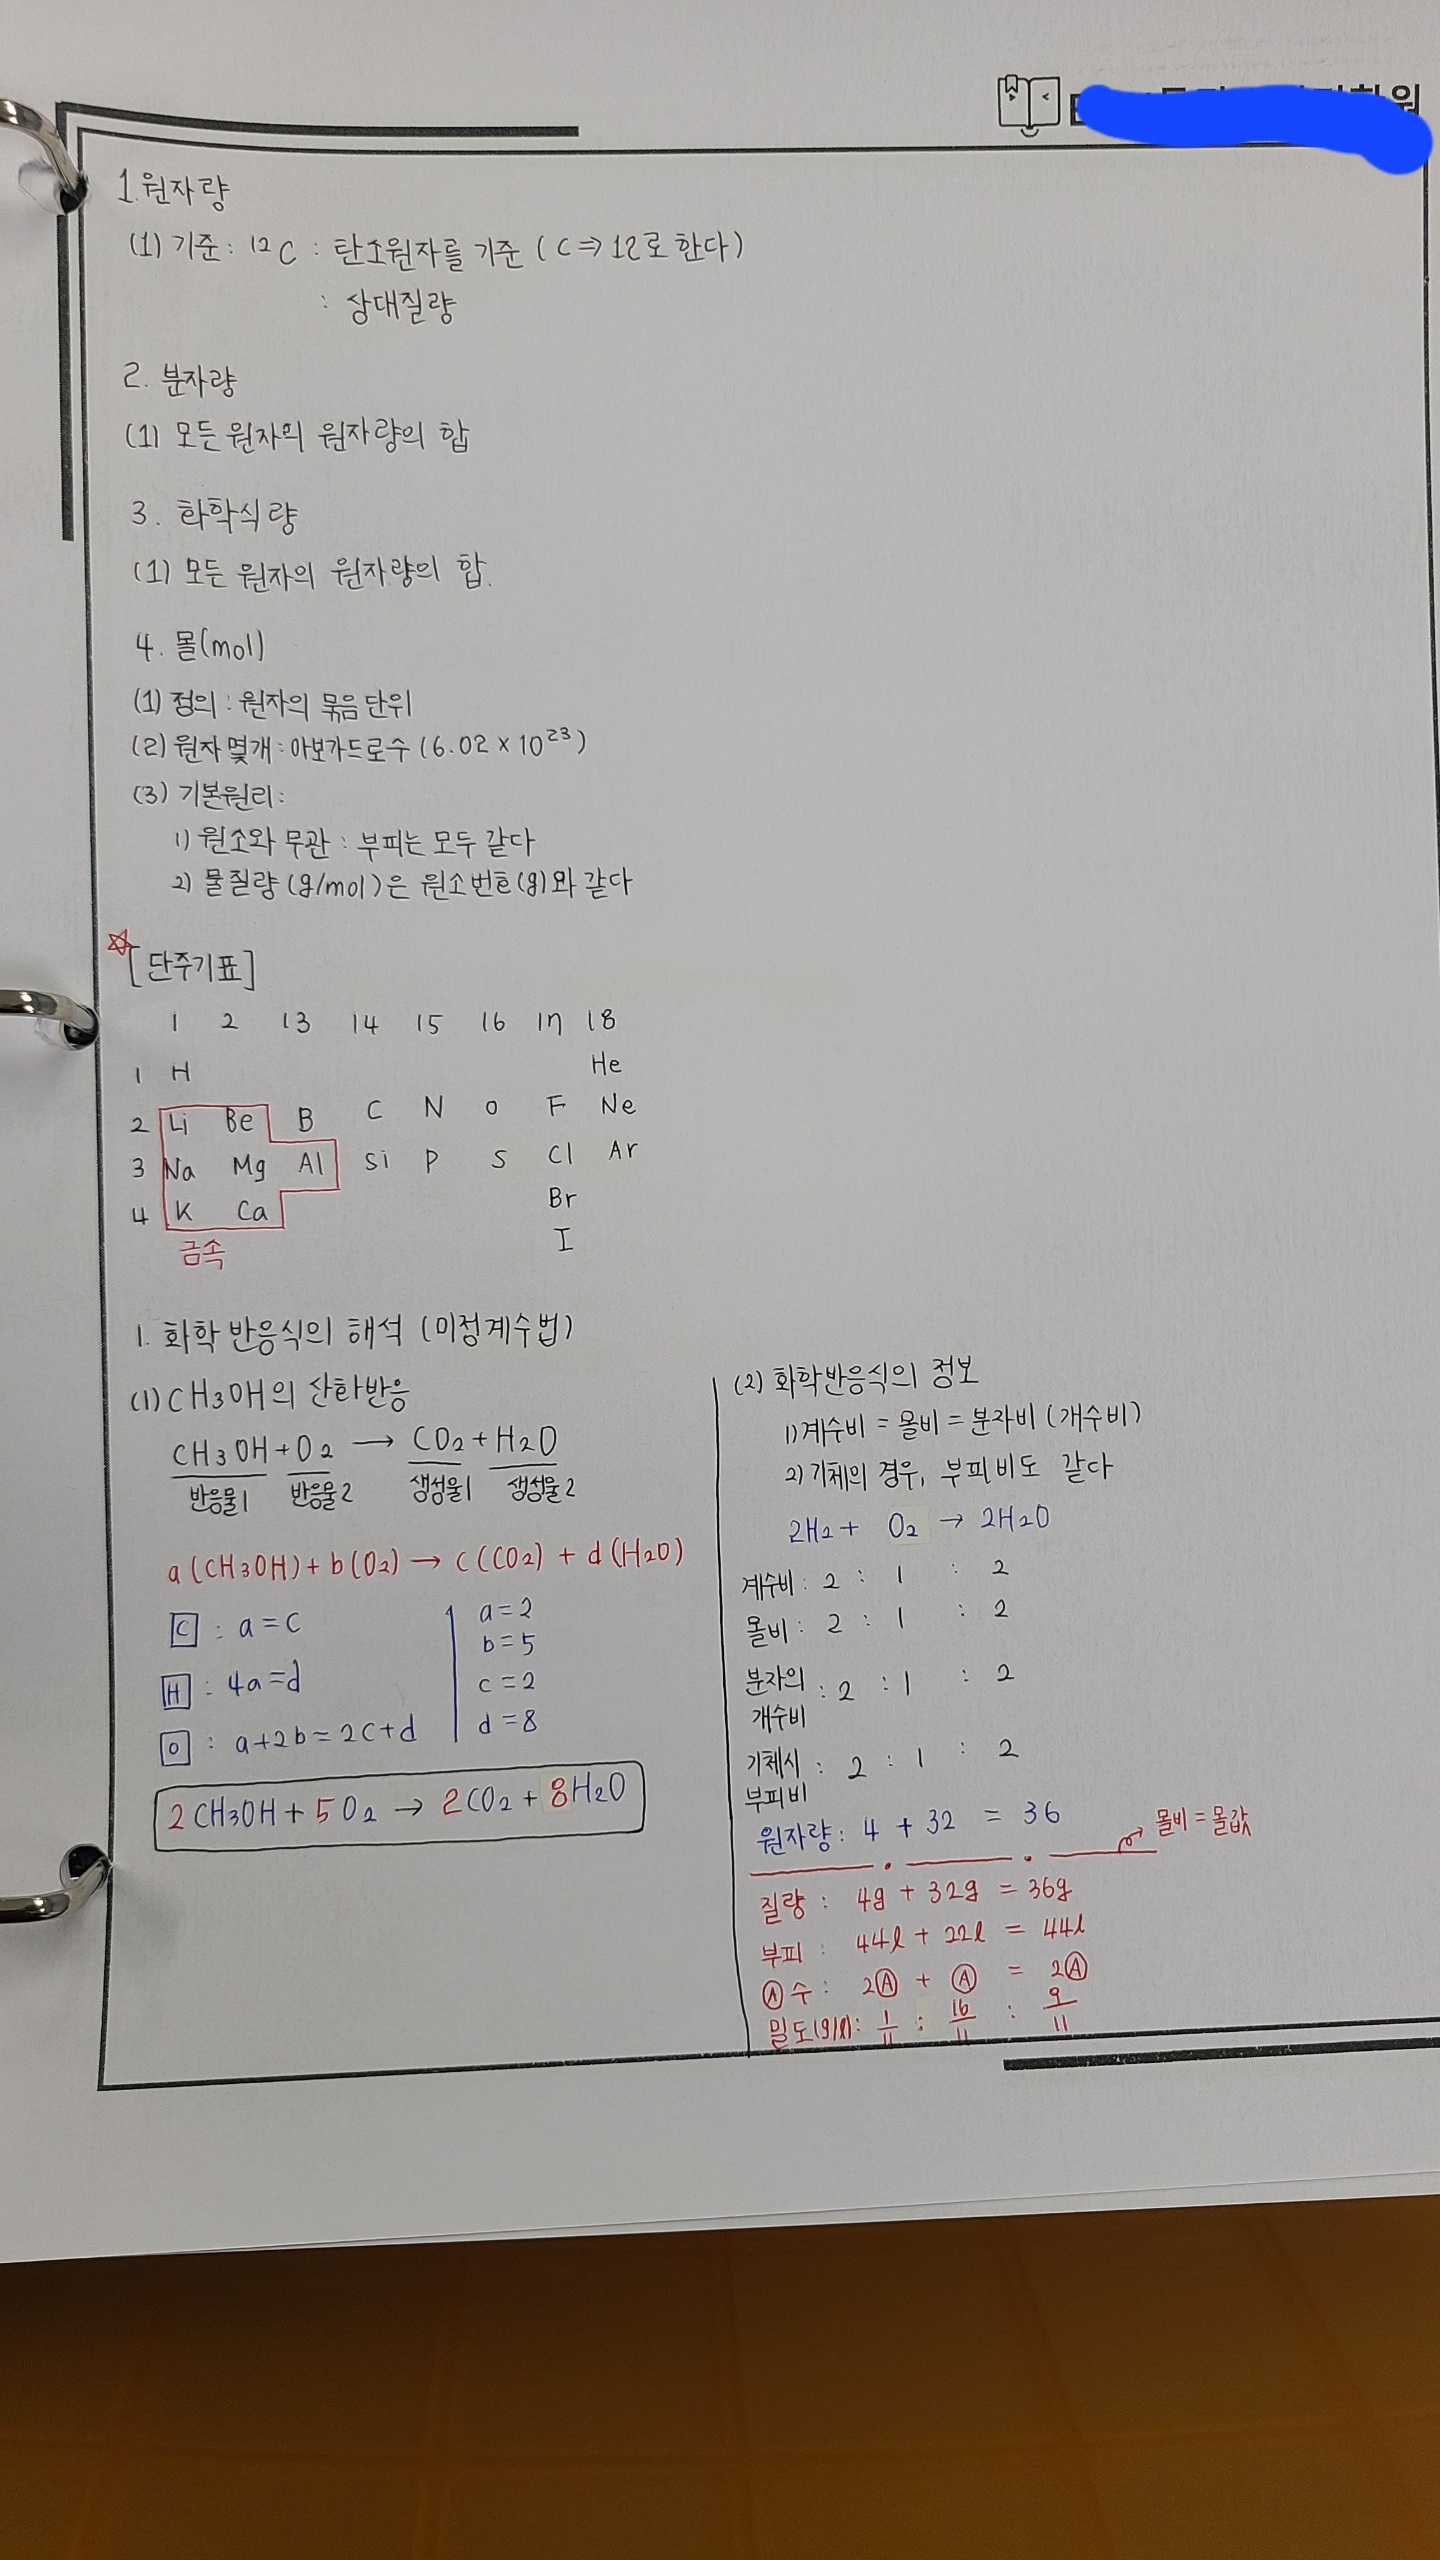 1.원자량
(1) 기준 : ¹²C : 탄소원자를 기준 (C⇒12로 한다)
: 상대질량
2. 분자량
(1) 모든 원자의 원자량의 합
3. 화학식량
(1) 모든 원자의 원자량의 합.
4. 몰(mol)
(1) 정의 : 원자의 묶음 단위
(2) 원자 몇개 : 아보가드로수 (6.02 × 10²³)
(3) 기본원리 :
1) 원소와 무관 : 부피는 모두 같다
2) 물질량 (g/mol)은 원소번호(g)와 같다
☆[단주기표]
1 2 13 14 15 16 17 18
1 H He
2 Li Be B C N O F Ne
3 Na Mg Al Si P S Cl Ar
4 K Ca Br
I
금속
1. 화학 반응식의 해석 (미정계수법)
(1) CH₃OH의 산화반응
CH₃OH + O₂ → CO₂ + H₂O
반응물1 반응물2 생성물1 생성물2
a (CH₃OH) + b (O₂) → c (CO₂) + d (H₂O)
C : a = c
H : 4a = d
O : a+2b = 2c+d
a = 2
b = 5
c = 2
d = 8
2 CH₃OH + 5 O₂ → 2 CO₂ + 8 H₂O
(2) 화학반응식의 정보
1) 계수비 = 몰비 = 분자비 (개수비)
2) 기체의 경우, 부피비도 같다
2H₂ + O₂ → 2H₂O
계수비 : 2 : 1 : 2
몰비 : 2 : 1 : 2
분자의 : 2 : 1 : 2
개수비
기체시 : 2 : 1 : 2
부피비
원자량 : 4 + 32 = 36
몰비 = 몰값
질량 : 4g + 32g = 36g
부피 : 44ℓ + 22ℓ = 44ℓ
Ⓐ수 : 2Ⓐ + Ⓐ = 2Ⓐ
밀도(g/ℓ) : 1/11 : 16/11 : 9/11